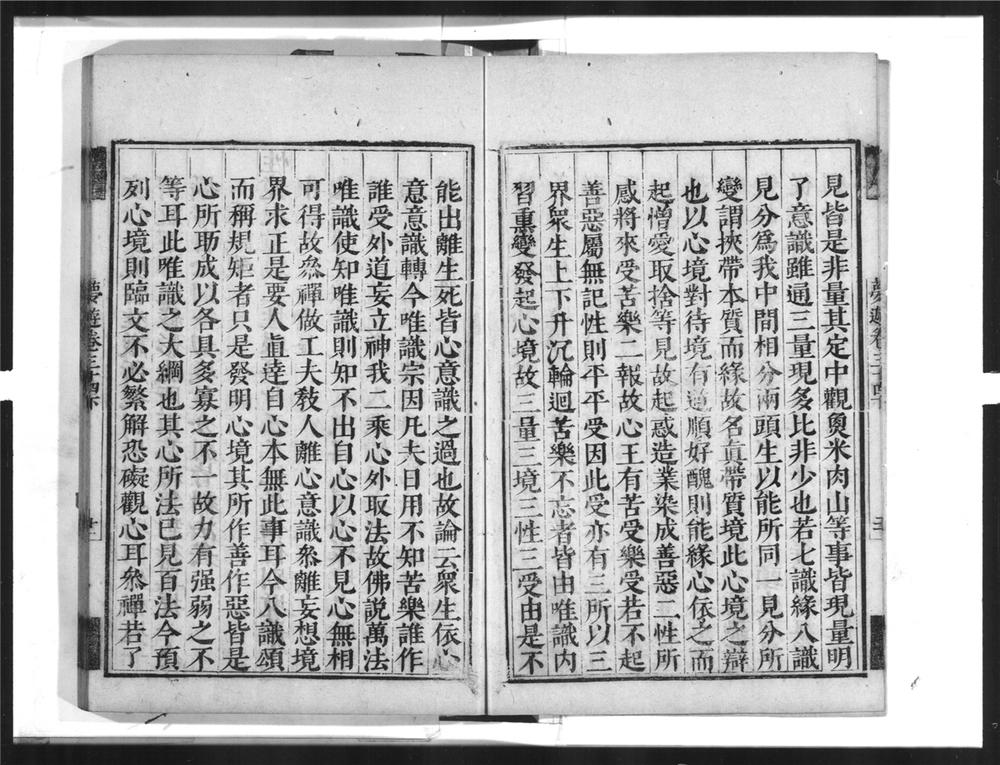 見皆是非量其定中觀魚米肉山等事皆現量明
了意識雖通三量現多比非少也若七識緣八識
見分爲我中間相分兩頭生以能所同一見分所
變謂挾帶本質而緣故名眞帶質境此心境之辯
也以心境對待境有違順好醜則能緣心依之而
起憎愛取捨等見故起惑造業染成善惡二性所
感將來受苦樂二報故心王有苦受樂受若不起
善惡屬無記性則平平受因此受亦有三所以三
界衆生上下升沉輪迴苦樂不忘者皆由唯識內
習熏變發起心境故三量三境三性三受由是不
能出離生死皆心意識之過也故論云衆生依心
意意識轉今唯識宗因凡夫日用不知苦樂誰作
誰受外道妄立神我二乘心外取法故佛說萬法
唯識使知唯識則知不出自心以心不見心無相
可得故叅禪做工夫敎人離心意識叅離妄想境
界求正是要人眞達自心本無此事耳今八識頌
而稱規矩者只是發明心境其所作善作惡皆是
心所助成以各具多寡之不一故力有强弱之不
等耳此唯識之大綱也其心所法已見百法今預
列心境則臨文不必繁解恐礙觀心耳叅禪若了
夢遊卷三十四